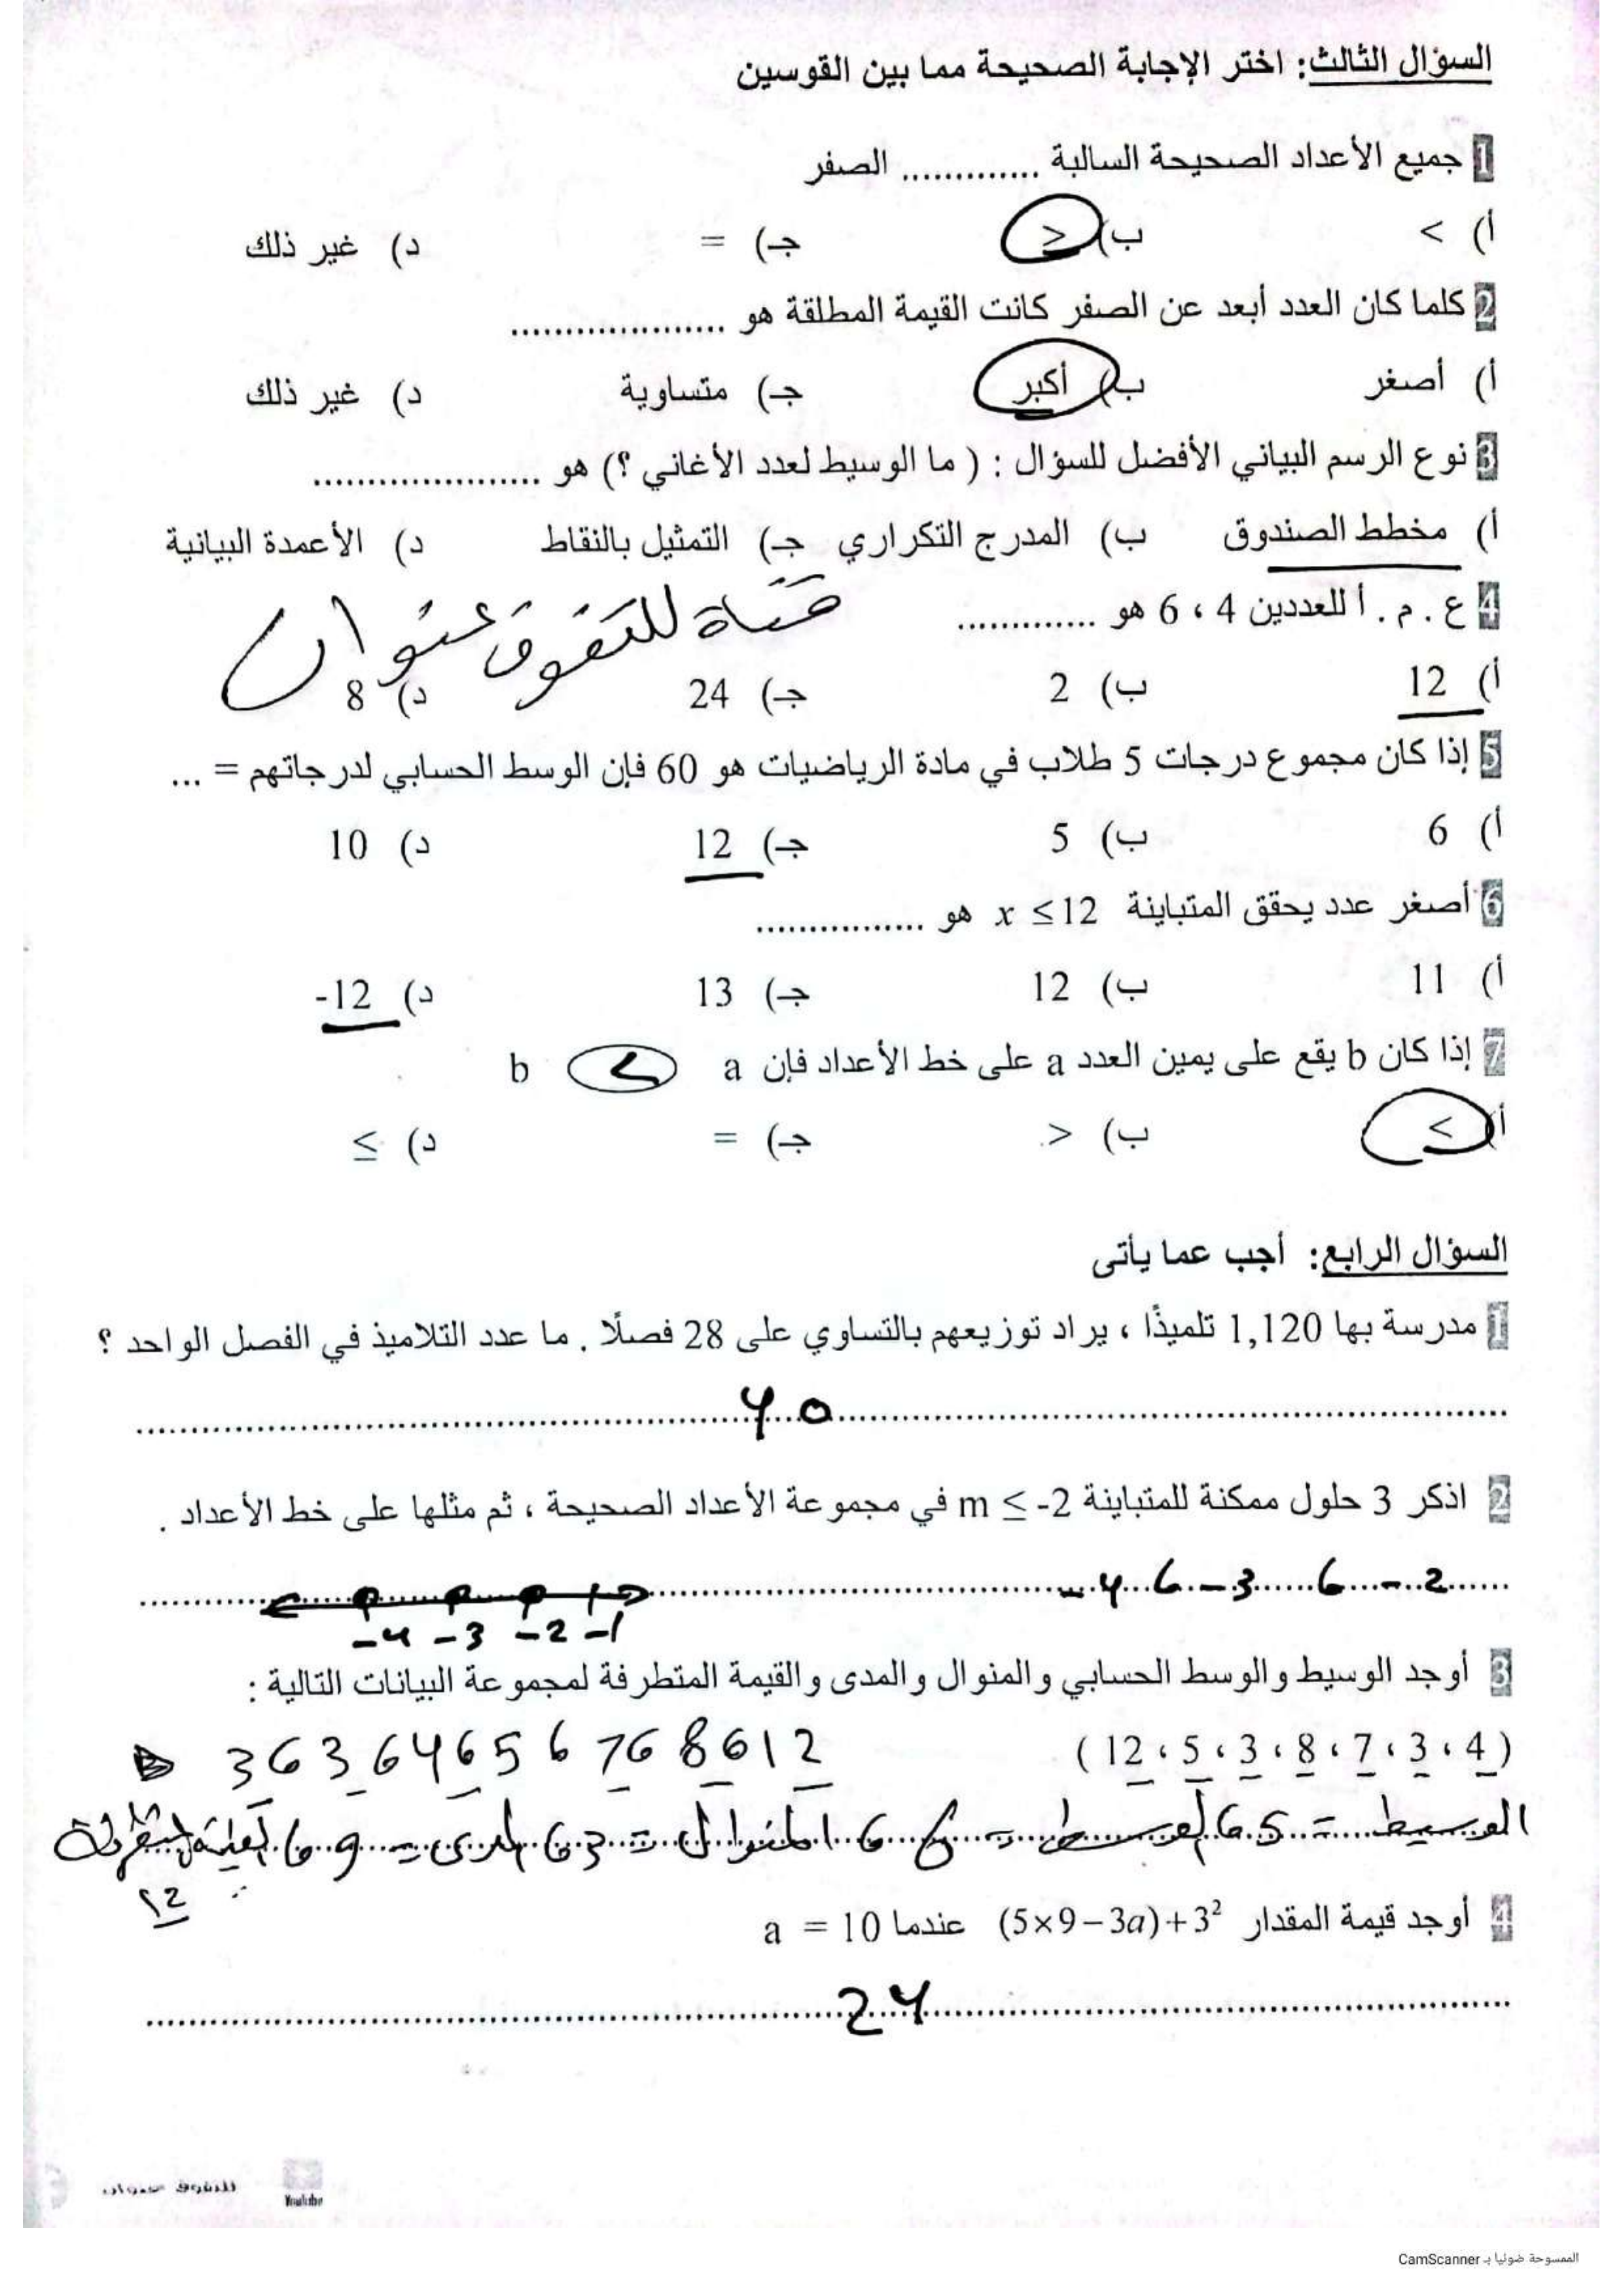 السؤال الثالث: اختر الإجابة الصحيحة مما بين القوسين
1 جميع الأعداد الصحيحة السالبة ............. الصفر
أ) < ب) > جـ) = د) غير ذلك
2 كلما كان العدد أبعد عن الصفر كانت القيمة المطلقة هو ....................
أ) أصغر ب) أكبر جـ) متساوية د) غير ذلك
3 نوع الرسم البياني الأفضل للسؤال : ( ما الوسيط لعدد الأغاني ؟) هو .....................
أ) مخطط الصندوق ب) المدرج التكراري جـ) التمثيل بالنقاط د) الأعمدة البيانية
قناة للتفوق عنوان
4 ع . م . أ للعددين 4 ، 6 هو .............
أ) 12 ب) 2 جـ) 24 د) 8
5 إذا كان مجموع درجات 5 طلاب في مادة الرياضيات هو 60 فإن الوسط الحسابي لدرجاتهم = ...
أ) 6 ب) 5 جـ) 12 د) 10
6 أصغر عدد يحقق المتباينة x ≤ 12 هو ................
أ) 11 ب) 12 جـ) 13 د) -12
7 إذا كان b يقع على يمين العدد a على خط الأعداد فإن a < b
أ) < ب) > جـ) = د) ≤
السؤال الرابع: أجب عما يأتى
1 مدرسة بها 1,120 تلميذًا ، يراد توزيعهم بالتساوي على 28 فصلًا . ما عدد التلاميذ في الفصل الواحد ؟
40
2 اذكر 3 حلول ممكنة للمتباينة m ≤ -2 في مجموعة الأعداد الصحيحة ، ثم مثلها على خط الأعداد .
-2 ، -3 ، -4
-4 -3 -2 -1
3 أوجد الوسيط والوسط الحسابي والمنوال والمدى والقيمة المتطرفة لمجموعة البيانات التالية :
( 12 ، 5 ، 3 ، 8 ، 7 ، 3 ، 4 )
3 ، 3 ، 4 ، 5 ، 7 ، 8 ، 12
الوسيط = 5 ، الوسط = 6 ، المنوال = 3 ، المدى = 9 ، القيمة المتطرفة
12
4 أوجد قيمة المقدار (5×9−3a)+3² عندما a = 10
24
للتفوق عنوان
YouTube
الممسوحة ضوئيا بـ CamScanner